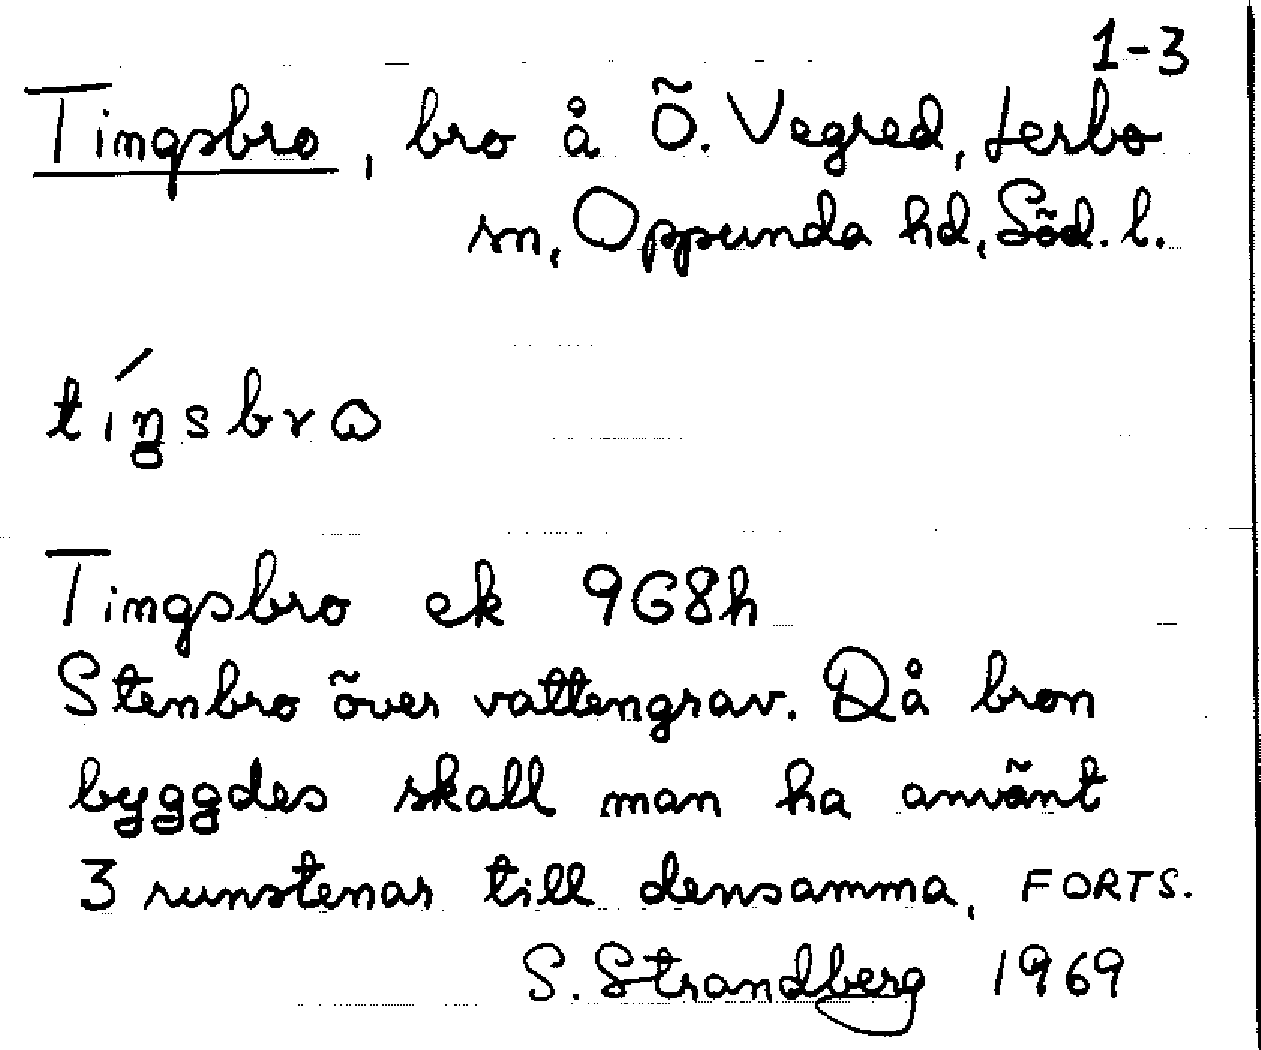 1-3
Tingsbro, bro å Ö. Vegred, Lerbo
sn, Oppunda hd, Söd. l.
tíŋsbrω
Tingsbro ek 9G8h
Stenbro över vattengrav. Då bron
byggdes skall man ha använt
3 runstenar till densamma, FORTS.
S. Strandberg 1969